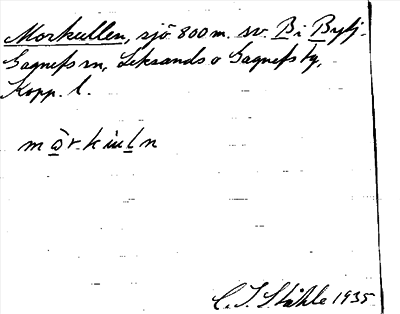 Morkullen, sjö 800 m. sv. B i Bytj.
Gagnefs sn, Leksands o Gagnefs tg,
Kopp. l.
C. I. Ståhle 1935